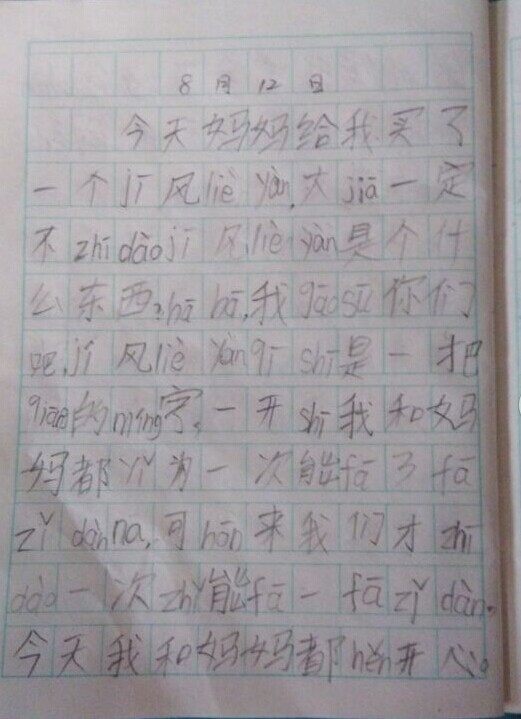 8月12日
今天妈妈给我买了
一个jī风liè yàn,大jiā一定
不zhī dào jī风liè yàn是个什
么东西?hā hā,我gāo sù你们
吧,jí风liè yàn qī shī是一把
qiāng的míng字。一开shī我和妈
妈都yǐ为一次能fā 3 fā
zǐ dàn nā,可hòu来我们才zhī
dào一次zhǐ能fā一fā zǐ dàn。
今天我和妈妈都hěn开心。